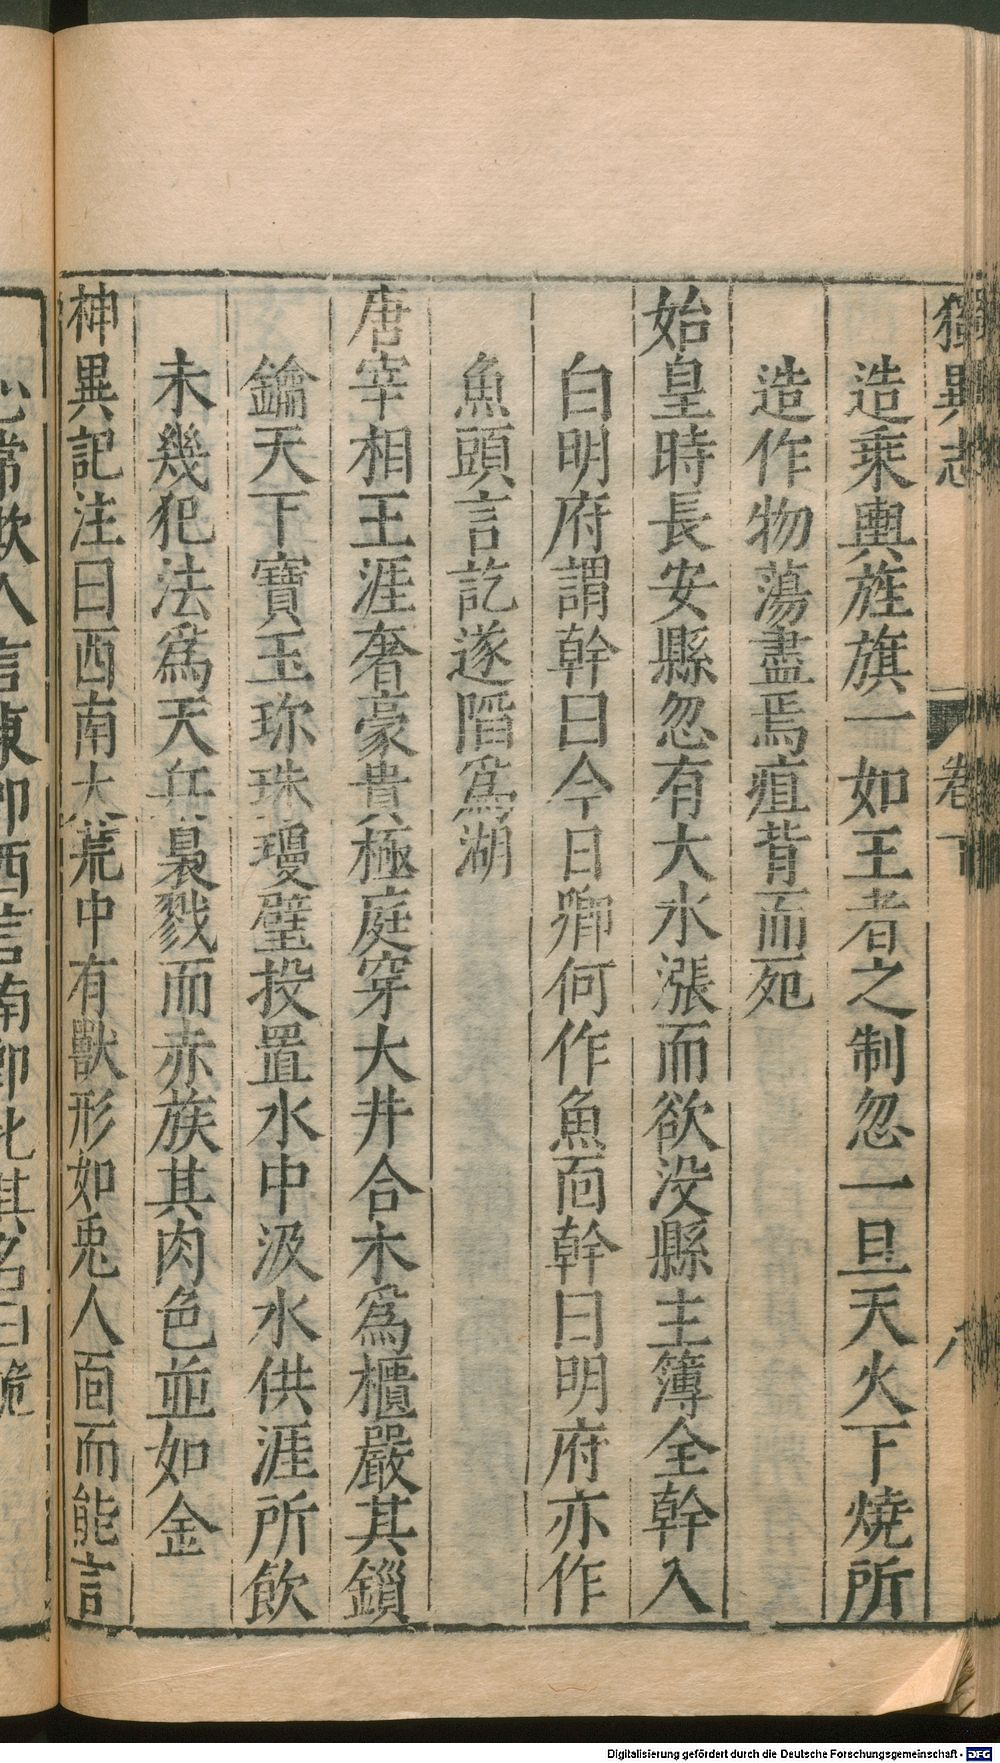 獨異志 卷下 八
造乘輿旌旗一如王者之制忽一旦天火下燒所
造作物蕩盡焉疽背而死
始皇時長安縣忽有大水漲而欲没縣主簿全幹入
白明府謂幹曰今日卿何作魚面幹曰明府亦作
魚頭言訖遂陷爲湖
唐宰相王涯奢豪貴極庭穿大井合木爲櫃嚴其鎖
鑰天下寶玉珎珠瓊璧投置水中汲水供涯所飲
未幾犯法爲天兵梟戮而赤族其肉色並如金
神異記注曰西南大荒中有獸形如兎人面而能言
心常欺人言東即西言南即北其名曰詭
Digitalisierung gefördert durch die Deutsche Forschungsgemeinschaft - DFG